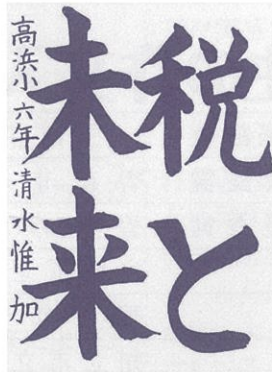 税と
未来
高浜小六年清水惟加